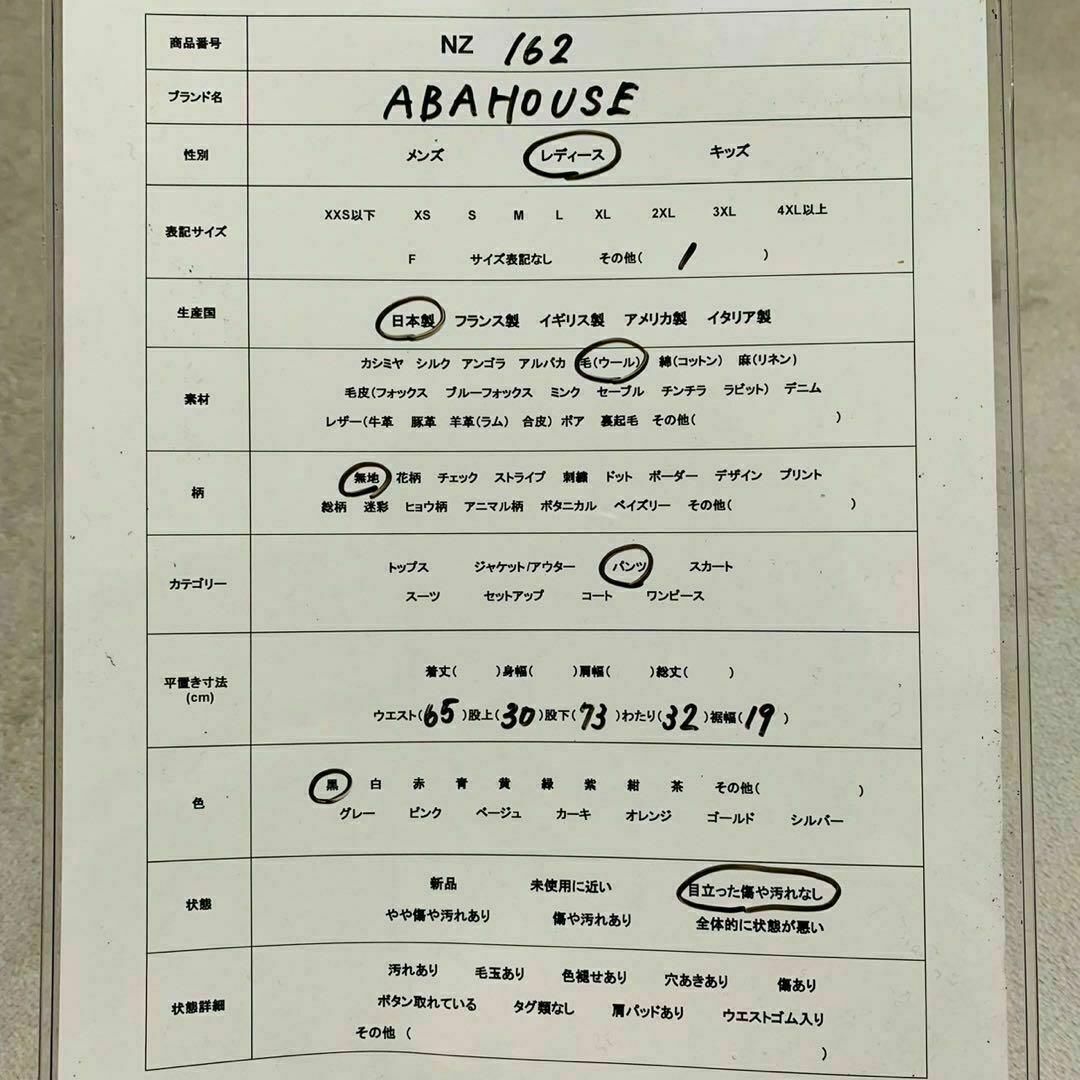 商品番号 NZ 162
ブランド名 ABAHOUSE
性別 メンズ レディース キッズ
XXS以下 XS S M L XL 2XL 3XL 4XL以上
表記サイズ
F サイズ表記なし その他( 1 )
生産国 日本製 フランス製 イギリス製 アメリカ製 イタリア製
カシミヤ シルク アンゴラ アルパカ 毛(ウール) 綿(コットン) 麻(リネン)
素材 毛皮(フォックス ブルーフォックス ミンク セーブル チンチラ ラビット) デニム
レザー(牛革 豚革 羊革(ラム) 合皮) ボア 裏起毛 その他( )
柄 無地 花柄 チェック ストライプ 刺繍 ドット ボーダー デザイン プリント
総柄 迷彩 ヒョウ柄 アニマル柄 ボタニカル ペイズリー その他( )
カテゴリー トップス ジャケット/アウター パンツ スカート
スーツ セットアップ コート ワンピース
平置き寸法 着丈( )身幅( )肩幅( )総丈( )
(cm) ウエスト(65)股上(30)股下(73)わたり(32)裾幅(19)
色 黒 白 赤 青 黄 緑 紫 紺 茶 その他( )
グレー ピンク ベージュ カーキ オレンジ ゴールド シルバー
状態 新品 未使用に近い 目立った傷や汚れなし
やや傷や汚れあり 傷や汚れあり 全体的に状態が悪い
汚れあり 毛玉あり 色褪せあり 穴あきあり 傷あり
状態詳細 ボタン取れている タグ類なし 肩パッドあり ウエストゴム入り
その他 ( )